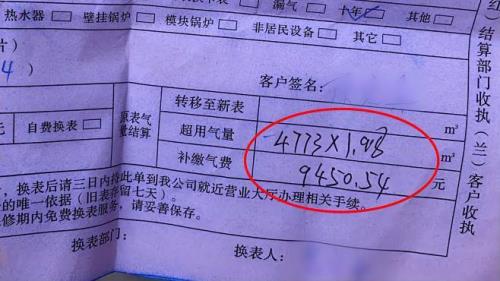 漏气 □ 十年 □ 其他 □
热水器 □ 壁挂锅炉 □ 模块锅炉 □ 非居民设备 □ 其它 □
片）
4）
客户签名：
元 自费换表 □ 原表气量结算 转移至新表 m³
超用气量 4773×1.98 m³
补缴气费 9450.54 元
，换表后请三日内持此单到我公司就近营业大厅办理相关手续。
的唯一依据（旧表存留七天）。
修期内免费换表服务，请妥善保存。
换表部门： 换表人：
结算部门收执（兰）客户收执